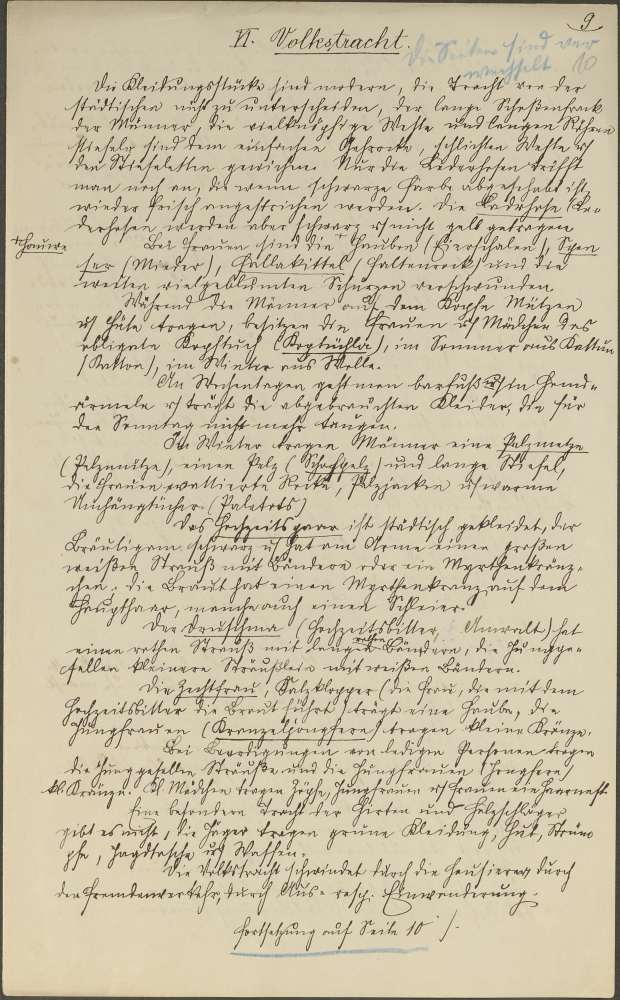 9
VI. Volkstracht.
Die Seiten sind ver
wechselt 10
Die Kleidungsstücke sind modern, die Tracht von der
städtischen nicht zu unterscheiden, der lange Schoßenfrack
der Männer, die vielknöpfige Weste und langen Röhren
stiefeln sind dem einfachen Gehrocke, schlichten Weste u
den Stiefeletten gewichen. Nur die Lederhosen trifft
man noch an, die wenn schwarze Farbe abgeschabt ist,
wieder frisch angestrichen werden. Die Lederhose (Le-
derhosen werden aber schwarz u nicht gelb getragen
Bei Frauen sind die Hauben (Eierschalen),
(Mieder), Hallakittel, Faltenrock und die
weiten vielgeblümten Schürzen verschwunden.
Während die Männer auf dem Kopfe Mützen
u Hüte tragen, besitzen die Frauen u Mädchen das
obligate Kopftuch (Koptüchla), im Sommer aus Kattun
(Katton), im Winter aus Wolle.
An Wochentagen geht man barfuß u in Hemd-
ärmeln u trägt die abgebrauchten Kleider, die für
den Sonntag nicht mehr taugen.
Im Winter tragen Männer eine Pelzmetze
(Pelzmütze), einen Pelz (Schofpelz) und lange Stiefel,
die Frauen wattierte Röcke, Pelzjacken u warme
Umhängtücher. (Paletots)
Das Hochzeitspaar ist städtisch gekleidet, der
Bräutigam schwarz u hat am Arme einen großen
weißen Strauß mit Bändern oder ein Myrthenkränz-
chen; die Braut hat einen Myrthenkranz auf dem
Haupthaar, manche auch einen Schleier.
Der Druschma (Hochzeitsbitter, Anwalt) hat
einen rothen Strauß mit langen rothen Bändern, die Jungge-
sellen kleinere Sträußlein mit weißen Bändern.
Die Zechtfrau, Salzklopper (die Frau, die mit dem
Hochzeitsbitter die Braut führt) trägt eine Haube, die
Jungfrauen (Kranzeljongfern) tragen kleine Kränze.
Bei Beerdigungen von ledigen Personen tragen
die Junggesellen Sträuße und die Jungfrauen (Jongfern)
kl. Kränze. Kl. Mädchen tragen Zöpfe, Jungfrauen u Frauen ein Haarnest.
Eine besondere Tracht der Hirten und Holzschläger
gibt es nicht, die Jäger tragen grüne Kleidung, Hut, Strüm
pfe, Jagdtasche und Waffen.
Die Volkstracht schwindet durch die Hausierer, durch
den Fremdenverkehr, durch Aus- resp. Einwanderung.
Fortsetzung auf Seite 10 /.